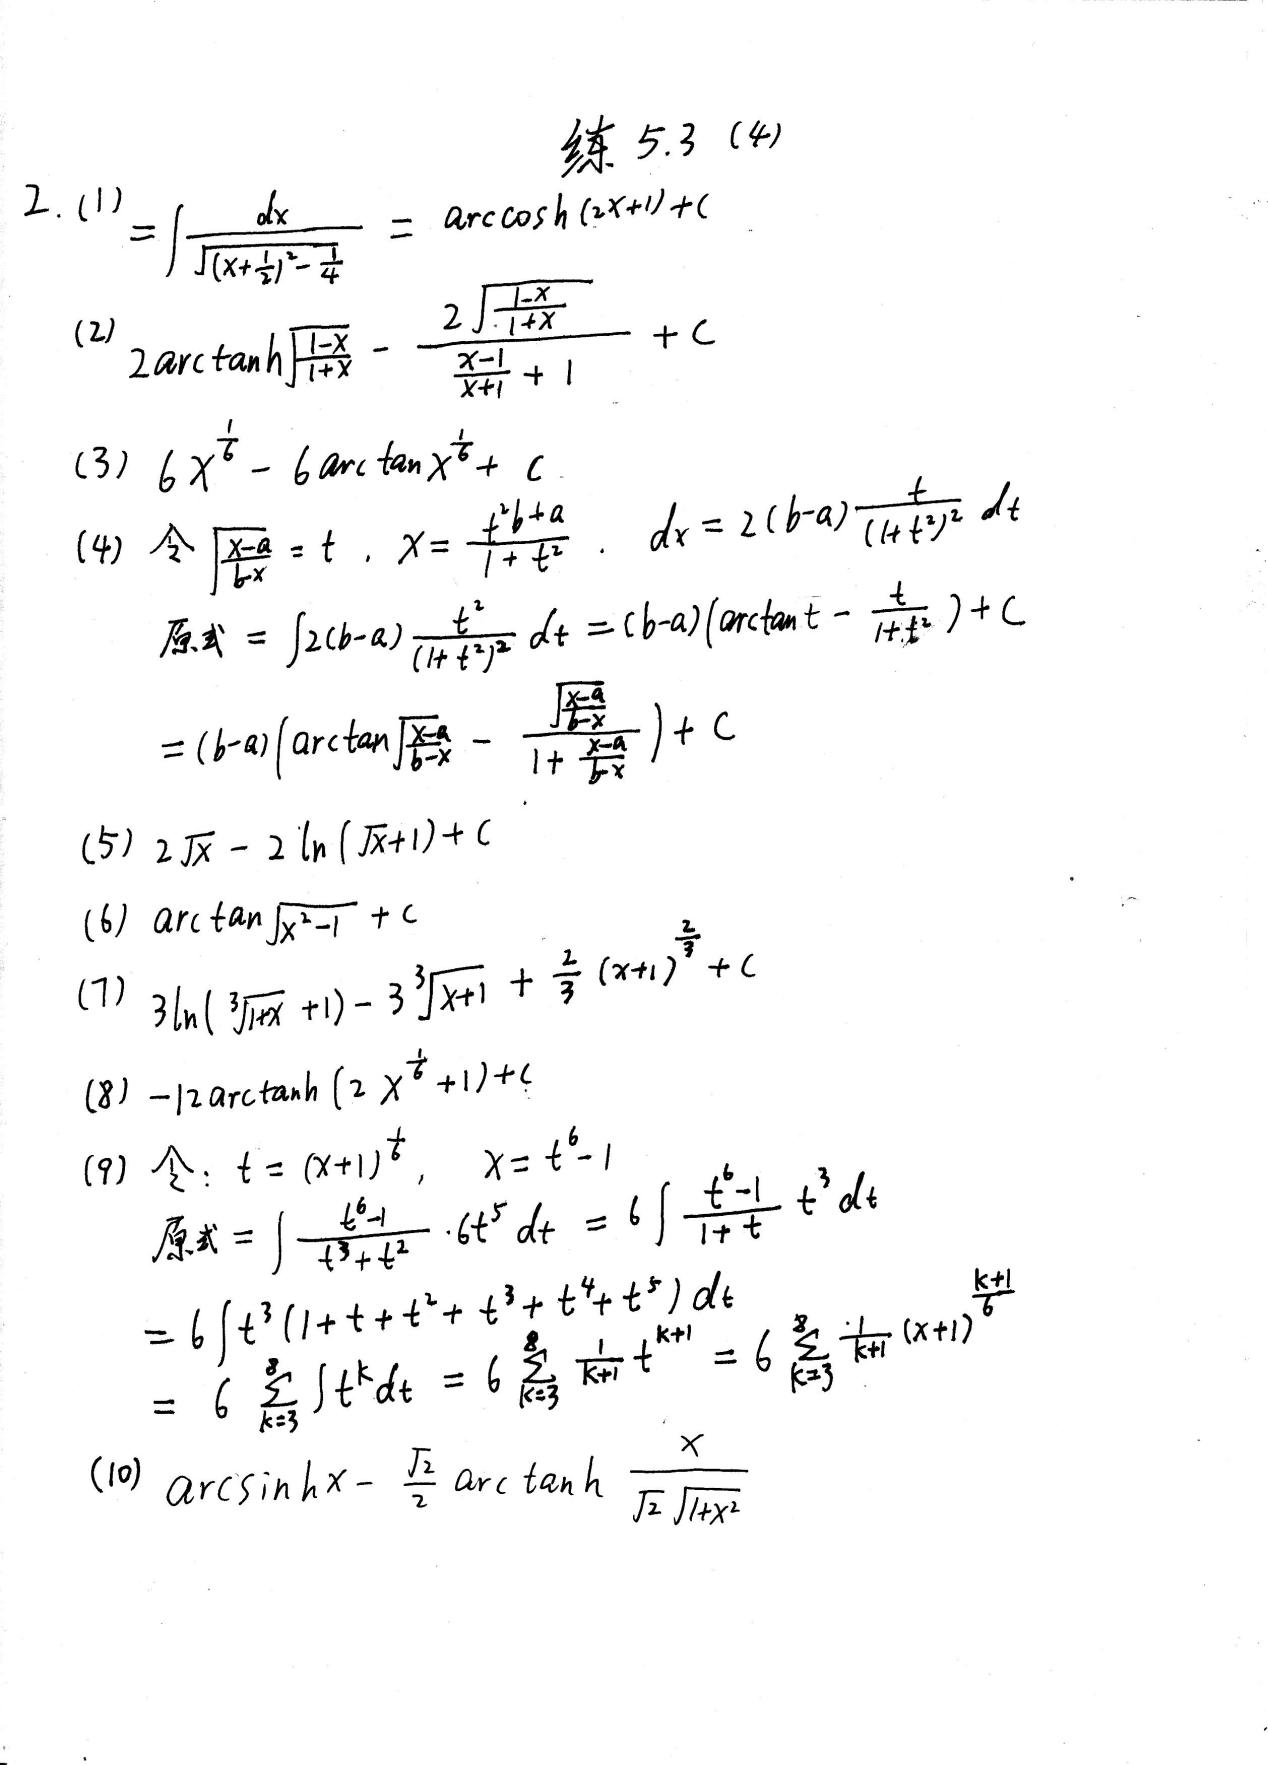 练 5.3 (4)
2. (1) = ∫ dx / √((x+1/2)²-1/4) = arccosh(2x+1)+C
(2) 2arctanh√((1-x)/(1+x)) - 2√((1-x)/(1+x)) / ((x-1)/(x+1) + 1) + C
(3) 6x^(1/6) - 6arctan x^(1/6) + C.
(4) 令 √((x-a)/(b-x)) = t, x = (t²b+a)/(1+t²). dx = 2(b-a) t/(1+t²)² dt
原式 = ∫2(b-a) t²/(1+t²)² dt = (b-a)(arctan t - t/(1+t²))+C
= (b-a)(arctan√((x-a)/(b-x)) - √((x-a)/(b-x)) / (1+(x-a)/(b-x))) + C
(5) 2√x - 2ln(√x+1)+C
(6) arctan√(x²-1) + C
(7) 3ln(∛(1+x) +1) - 3∛(x+1) + 2/3 (x+1)^(2/3) + C
(8) -12arctanh(2x^(1/6)+1)+C
(9) 令: t = (x+1)^(1/6), x = t⁶-1
原式 = ∫ (t⁶-1)/(t³+t²) · 6t⁵ dt = 6∫ (t⁶-1)/(1+t) t³ dt
= 6∫t³(1+t+t²+t³+t⁴+t⁵) dt
= 6 Σ_(k=3)^8 ∫t^k dt = 6 Σ_(k=3)^8 1/(k+1) t^(k+1) = 6 Σ_(k=3)^8 1/(k+1) (x+1)^((k+1)/6)
(10) arcsinh x - √2/2 arctanh x/(√2 √(1+x²))